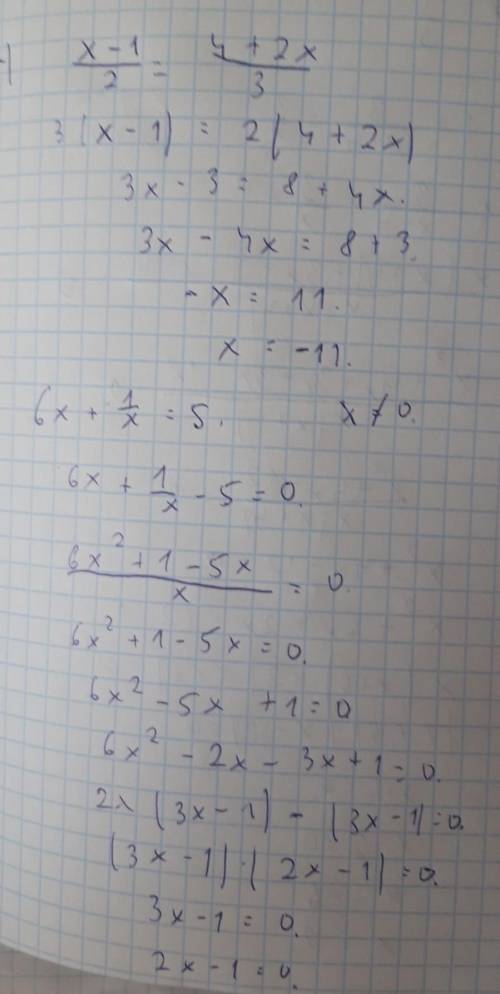 (x - 1)/2 = (4 + 2x)/3
3(x - 1) = 2(4 + 2x)
3x - 3 = 8 + 4x.
3x - 4x = 8 + 3.
- x = 11.
x = -11.
6x + 1/x = 5. x ≠ 0.
6x + 1/x - 5 = 0.
(6x² + 1 - 5x)/x = 0.
6x² + 1 - 5x = 0.
6x² - 5x + 1 = 0
6x² - 2x - 3x + 1 = 0.
2x (3x - 1) - (3x - 1) = 0.
(3x - 1) · (2x - 1) = 0.
3x - 1 = 0.
2x - 1 = 0.